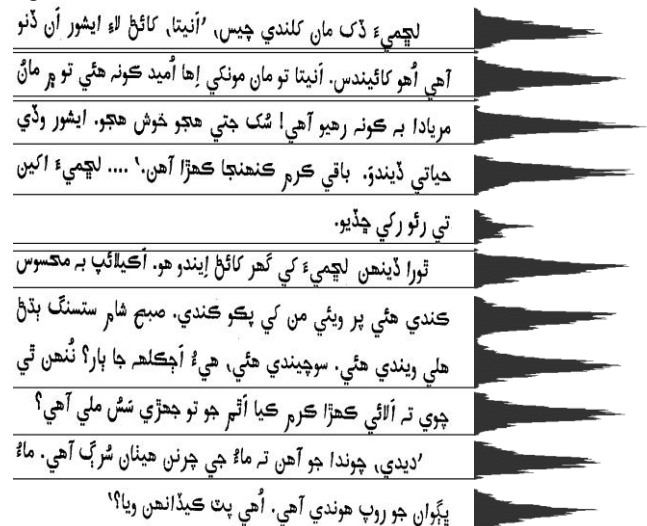 لڇميءَ ڏک مان کلندي چيس، ’اَنيتا، کائڻ لاءِ ايشور اَن ڏنو
آهي اُهو کائيندس. اَنيتا تو مان مونکي اِها اُميد ڪونہ هئي تو ۾ مانُ
مريادا بہ ڪونہ رهيو آهي! سُک جتي هجو خوش هجو. ايشور وڏي
حياتي ڏيندوَ. باقي ڪرم ڪنهنجا ڪهڙا آهن.‘ .... لڇميءَ اکين
تي رئو رکي ڇڏيو.
ٿورا ڏينهن لڇميءَ کي گهر کائڻ اِيندو هو. اَڪيلائپ بہ محسوس
ڪندي هئي پر ويئي من کي پڪو ڪندي. صبح شام ستسنگ ٻڌڻ
هلي ويندي هئي. سوچيندي هئي، هيءُ اَڄڪلهہ جا ٻار؟ نُنهن ٿي
چوي تہ اَلائي ڪهڙا ڪرم ڪيا اَٿم جو تو جهڙي سَسُ ملي آهي؟
’ديدي، چوندا جو آهن تہ ماءُ جي چرنن هيٺان سُرڳ آهي. ماءُ
ڀڳوان جو روپ هوندي آهي. اُهي پٽ ڪيڏانهن ويا؟‘